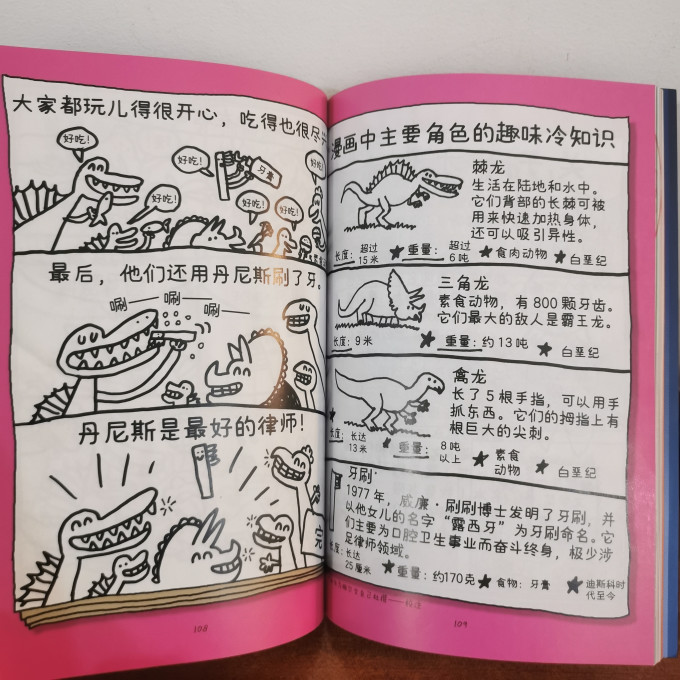 大家都玩儿得很开心，吃得也很尽
好吃！
好吃！
好吃！
好吃！
好吃！
好吃！
牙膏
最后，他们还用丹尼斯刷了牙。
唰——唰——唰——
丹尼斯是最好的律师！
完
108
漫画中主要角色的趣味冷知识
棘龙
生活在陆地和水中。
它们背部的长棘可被
用来快速加热身体，
还可以吸引异性。
长度：超过15米 ★ 重量：超过6吨 ★ 食肉动物 ★ 白垩纪
三角龙
素食动物，有800颗牙齿。
它们最大的敌人是霸王龙。
长度：9米 ★ 重量：约13吨 ★ 白垩纪
禽龙
长了5根手指，可以用手
抓东西。它们的拇指上有
根巨大的尖刺。
长度：长达13米 ★ 重量：8吨以上 ★ 素食动物 ★ 白垩纪
牙刷*
1977年，威廉·刷刷博士发明了牙刷，并
以他女儿的名字“露西牙”为牙刷命名。它
们主要为口腔卫生事业而奋斗终身，极少涉
足律师领域。
长度：长达25厘米 ★ 重量：约170克 ★ 食物：牙膏 ★ 迪斯科时代至今
109